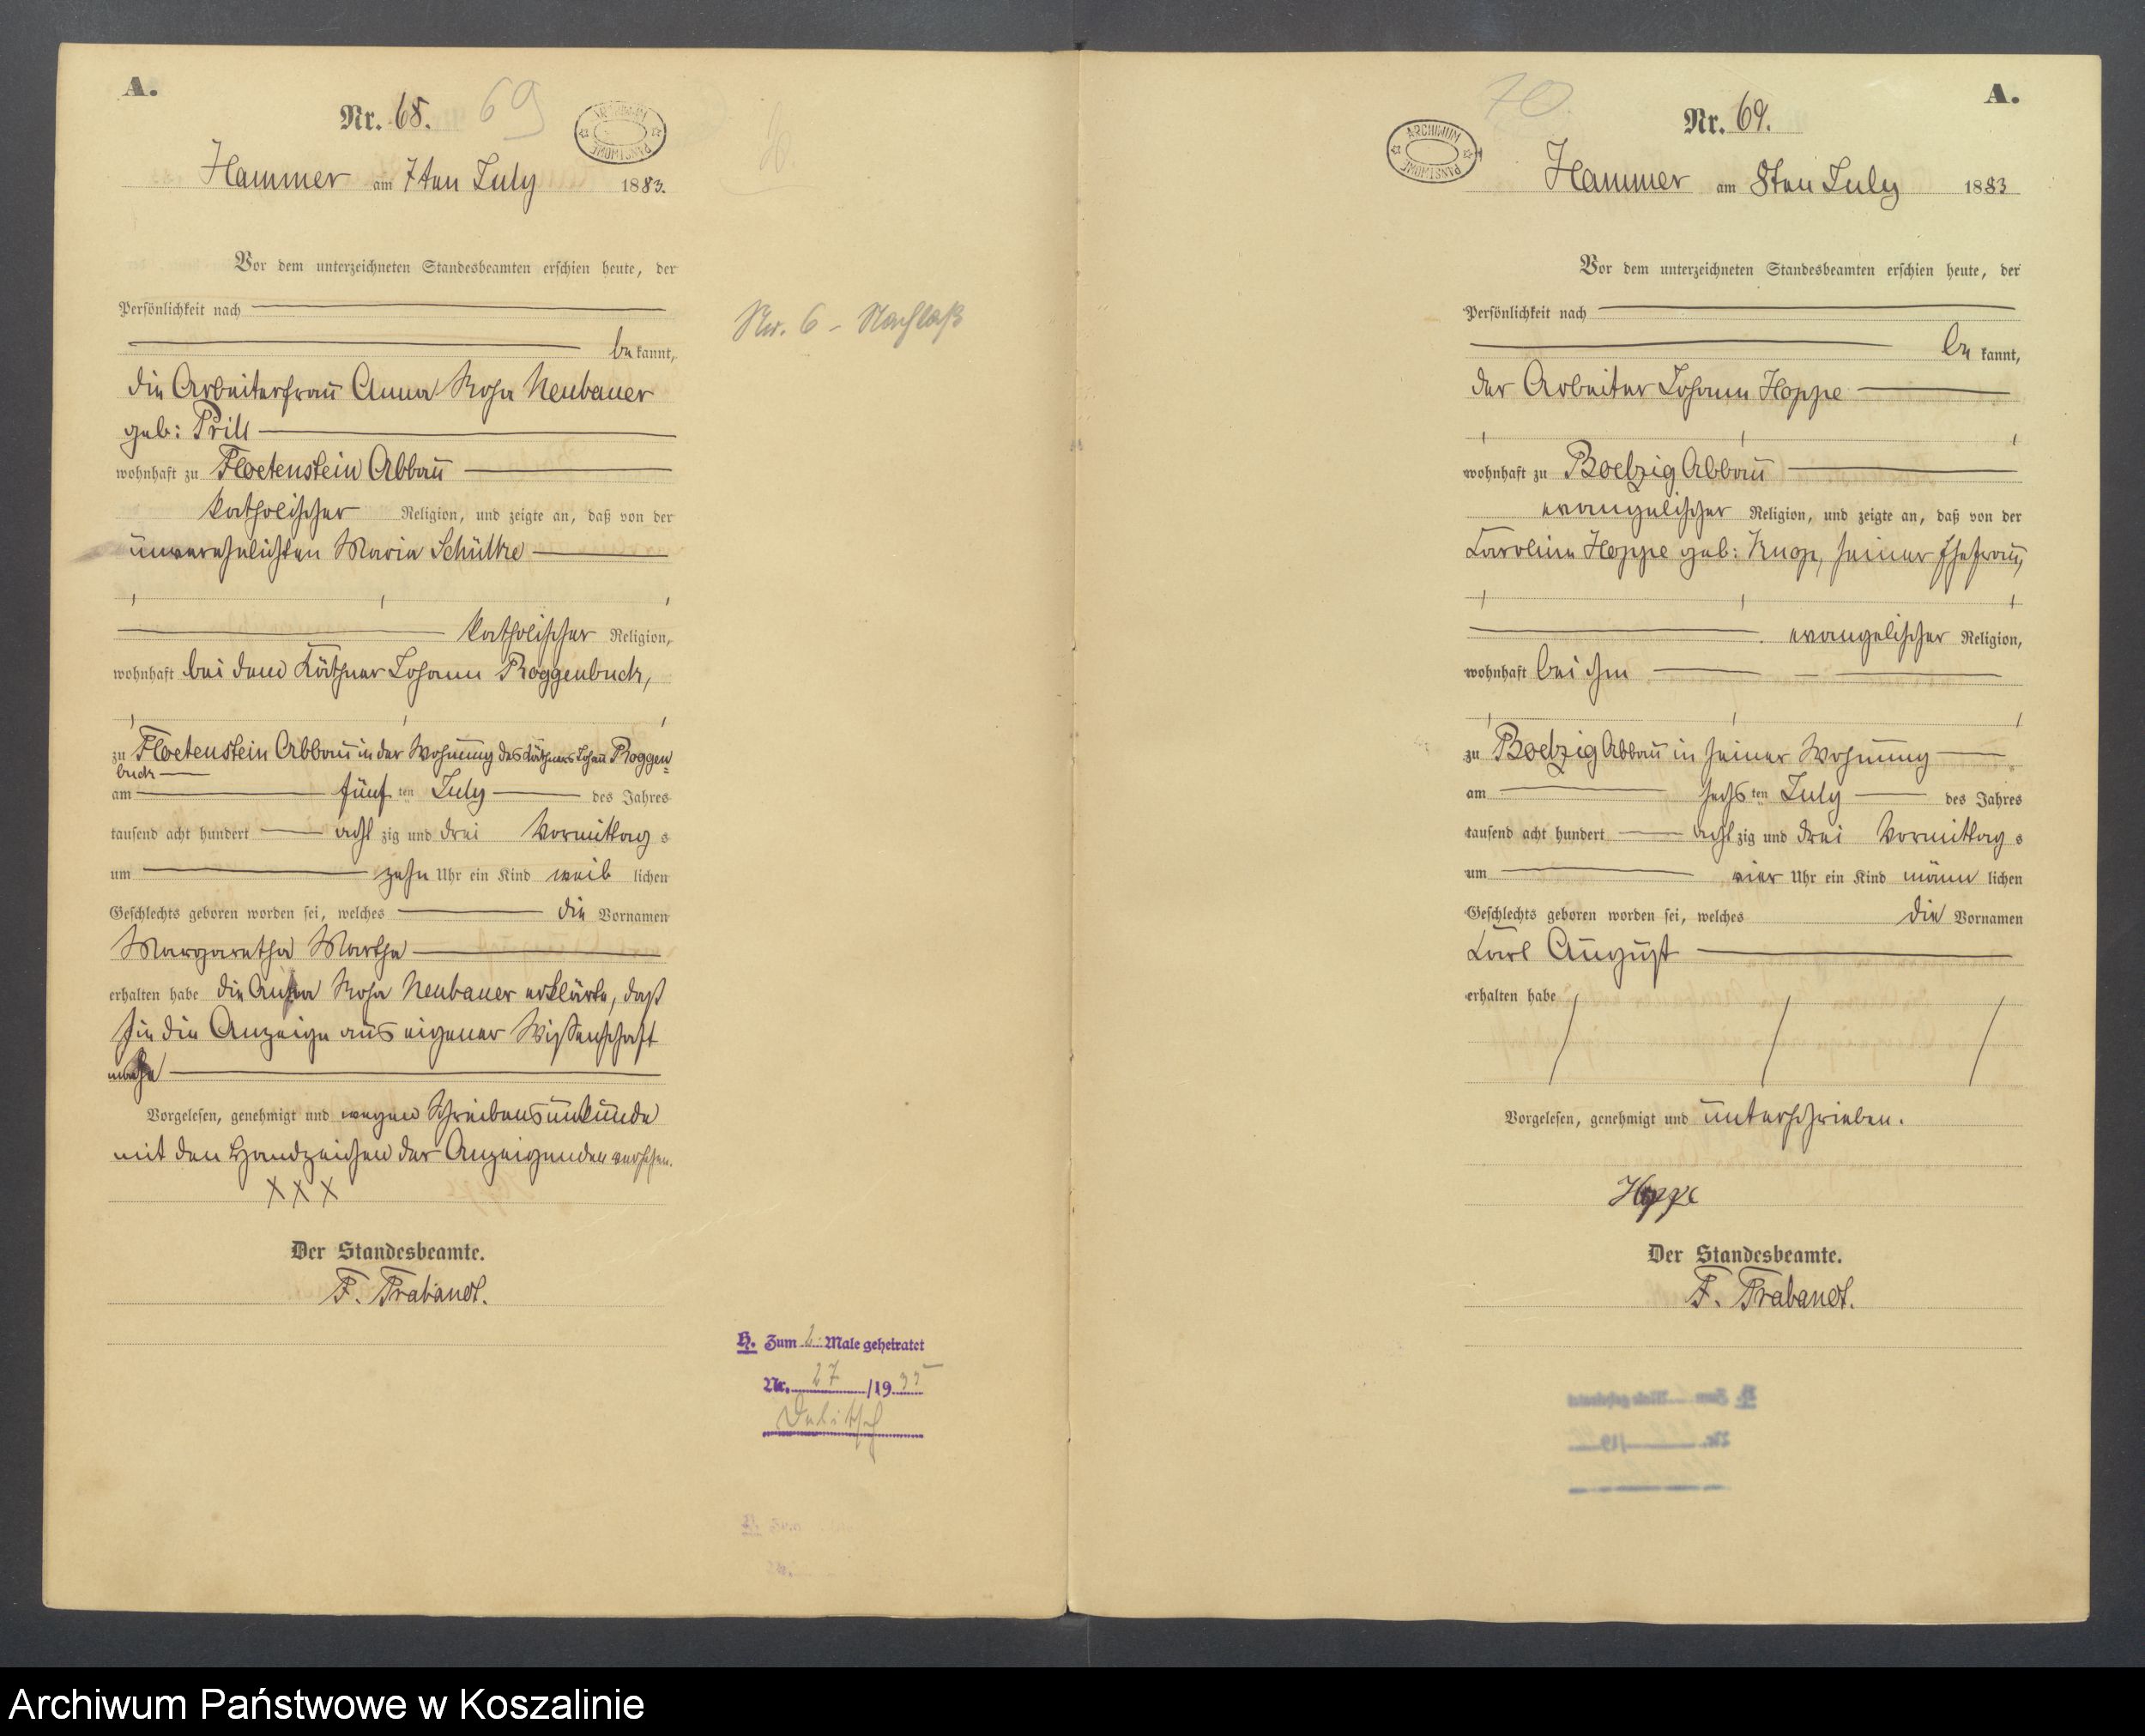 A.
Nr. 68. 69
ARCHIWUM PAŃSTWOWE
Hammer am 7ten July 1883.
Vor dem unterzeichneten Standesbeamten erschien heute, der
Persönlichkeit nach
be kannt,
die Arbeiterfrau Anna Rosa Neubauer
geb: Prill
wohnhaft zu Floetenstein Abbau
katholischer Religion, und zeigte an, daß von der
unverehelichten Maria Schültke
katholischer Religion,
wohnhaft bei dem Käthner Johann Roggenbuck,
zu Floetenstein Abbau in der Wohnung des Käthners Johann Roggen=
buck
am fünf ten July des Jahres
tausend acht hundert acht zig und drei Vormittag s
um zehn Uhr ein Kind weib lichen
Geschlechts geboren worden sei, welches die Vornamen
Margaretha Martha
erhalten habe die Anna Rosa Neubauer erklärte, daß
sie die Anzeige aus eigener Wissenschaft
mache
Vorgelesen, genehmigt und wegen Schreibensunkunde
mit den Handzeichen der Anzeigenden versehen.
XXX
Der Standesbeamte.
F. Trabandt.
Nr. 6 - Nachlaß
H. Zum 2. Male geheiratet
Nr. 27 /19 35
A.
70
Nr. 69.
ARCHIWUM PAŃSTWOWE
Hammer am 8ten July 1883
Vor dem unterzeichneten Standesbeamten erschien heute, der
Persönlichkeit nach
be kannt,
der Arbeiter Johann Hoppe
wohnhaft zu Boelzig Abbau
evangelischer Religion, und zeigte an, daß von der
Karoline Hoppe geb: Knop, seiner Ehefrau,
evangelischer Religion,
wohnhaft bei ihm
zu Boelzig Abbau in seiner Wohnung
am sechs ten July des Jahres
tausend acht hundert acht zig und drei Vormittag s
um vier Uhr ein Kind männ lichen
Geschlechts geboren worden sei, welches die Vornamen
Karl August
erhalten habe
Vorgelesen, genehmigt und unterschrieben.
Hoppe
Der Standesbeamte.
F. Trabandt.
Archiwum Państwowe w Koszalinie